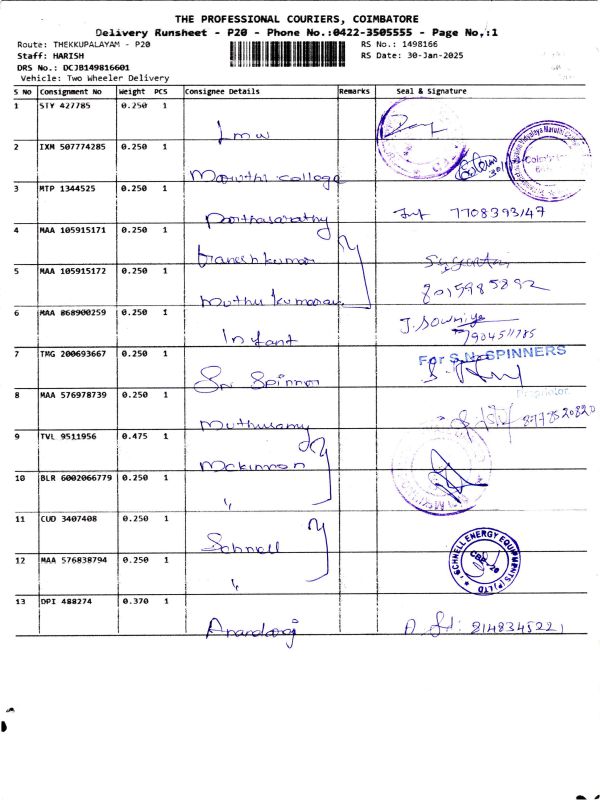 THE PROFESSIONAL COURIERS, COIMBATORE
Delivery Runsheet - P20 - Phone No.:0422-3505555 - Page No,:1
Route: THEKKUPALAYAM - P20
RS No.: 1498166
Staff: HARISH
RS Date: 30-Jan-2025
DRS No.: DCJB149816601
Vehicle: Two Wheeler Delivery
S No Consignment No Weight PCS Consignee Details Remarks Seal & Signature
1 STY 427785 0.250 1
Lmw
2 IXM 507774285 0.250 1
Maruthi college
3 MTP 1344525 0.250 1
Parthasarathy 7708393147
4 MAA 105915171 0.250 1
Ganesh kumar
5 MAA 105915172 0.250 1
Muthu kumaran 8015985892
6 MAA 868900259 0.250 1
Infant J. Sowmiya
7904511785
7 TMG 200693667 0.250 1
For S.N. SPINNERS
Sri Spinner
Proprietor
8 MAA 576978739 0.250 1
Muthusamy 8778520820
9 TVL 9511956 0.475 1
Mckinnon
10 BLR 6002066779 0.250 1
"
11 CUD 3407408 0.250 1
Schnell
SCHNELL ENERGY EQUIPMENTS (P) LTD
CBE - 20
12 MAA 576838794 0.250 1
"
13 DPI 488274 0.370 1
Anandaraj 8148345221